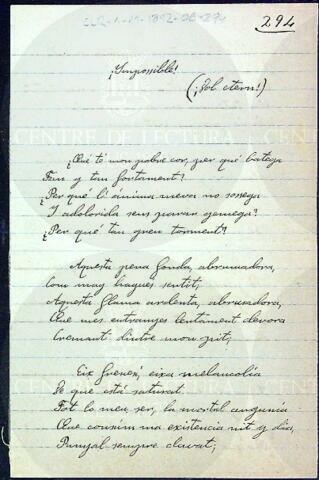 294
¡Impossible!
(¡Dol etern!)
CENTRE DE LECTURA
¿Qué té mon pobre cor, per qué batega
Fun y tan fortament?
¿Per qué l'ánima meva no sossega
Y adolorida sens parar gemega?
¿Per qué tan greu torment?
Aquesta pena fonda, abrumadora,
Com may hagues sentit;
Aquesta flama ardenta, abrusadora,
Que mes entranyes lentament devora
Cremant dintre mon pit;
Eix frenesí, eixa melancolía
De que está saturat
Tot lo meu ser, la mortal angunia
Que consúm ma existencia nit y dia,
Punyal sempre clavat;